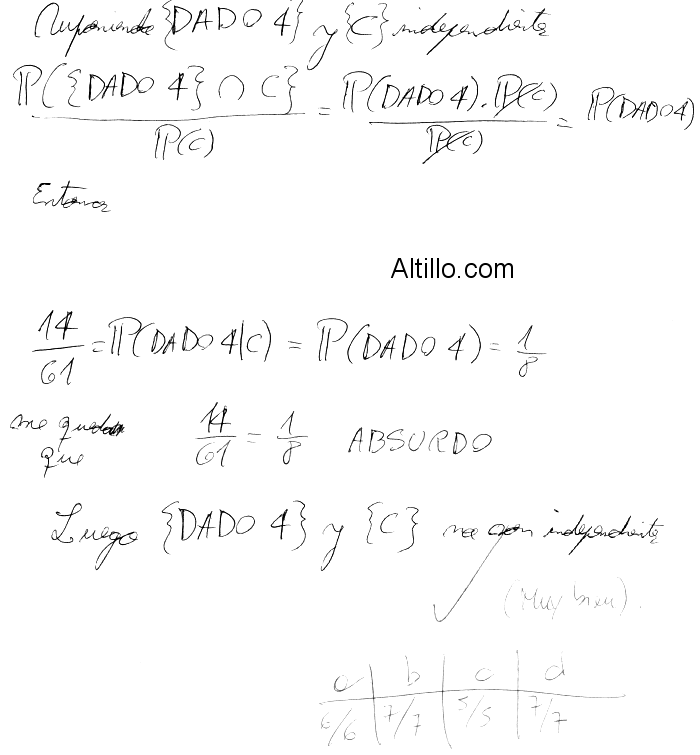 Suponiendo {DADO 4} y {C} independientes
P({DADO 4} ∩ C} / P(C) = P(DADO 4) . P(C) / P(C) = P(DADO 4)
Entonces
Altillo.com
14/61 = P(DADO 4|C) = P(DADO 4) = 1/8
me queda
que 14/61 = 1/8 ABSURDO
Luego {DADO 4} y {C} no son independientes
(Muy bien).
a b c d
6/6 7/7 5/5 7/7